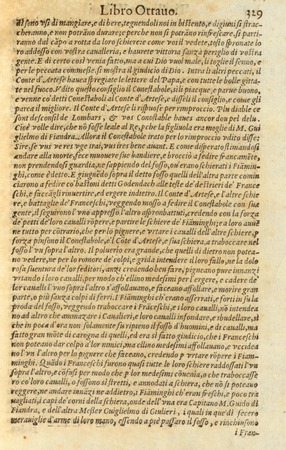 Libro Ottauo. 329
al loro vso di mangiare, e di bere, teguendoli noi in bistento, e digiuni si strac=
cheranno, e non potráno durare; perche non si potráno rinfrescare, se parti-
ranno dal cápo a rotta da loro schiere: e come voi il vedete, tosto spronate lo-
ro addosso con vostra caualleria, e haurete vittora sanza periglio di vostra
gente. E di certo così veniua fatto, ma a cui Dio vuol male, li toglie il senno, e
per le peccata commesse, si mostra il giudicio di Dio. Intra li altri peccati, il
Conte d'Artese hauea spregiate le lettere del Papa, e con tutte le bolle gitta-
te nel fuoco. Vdito questo consiglio il Conestabole, sì li piacque, e parue buono,
e venne con certi de' Conestaboli al Conte d'Artese, e disseli il consiglio, e come gli
parea il migliore. Il Conte d'Artese li rispuose per rimproccio. Plu diable ce
sont desconseil de Lombars, & vos Conestable haues ancor dou pel delu.
Cioè volle dire, che non fosse leale al Re, e che la figliuola era moglie di M. Gu=
glielmo di Fiandra, allhora il Conestabole irato per lo rimproccio vdito disse:
Sire se vus ve rez ve ge vrai, vus ires ben auant. E come disperato stimandosi
andare alla morte fece muouere sue bandiere, e brocciò a fedire francamente,
non prendendosi guardia, ne sappiendo del fosso, ou'erano schierati i Fiammin-
ghi, come è detto. E giugnendo sopra il detto fosso quelli dell'altra parte comin-
ciarono a fedire co' bastoni detti Godendardi alle teste de' destrieri de' France
schi, e faceagli rouertire, ed ergere indietro. Il Conte d'Artese, e l'altre schie-
re, e battaglie de' Franceschi, veggendo mosso a fedire il Conestabole con sua
gente, il seguirono l'vno appresso l'altro a sproni battuti, credendo con la forza
de' petti de' loro caualli rompere, e partire le schiere de' Fiamminghi; e loro auuë
ne tutto per cōtrario, che per lo pignere, e vrtare i caualli dell'altre schiere, per
forza pinsono il Conestabole, e'l Cōte d'Artese, e sua schiera, a traboccare nel
fosso l'vn sopra l'altro. Il poluerio era grande, che quelli di dietro non potea-
no vedere, ne per lo romore de' colpi, e grida intendere il loro fallo, ne la dolo
rosa suentura de' lor feditori, anzi credendo ben fare, pigneano pure innanzi
vrtando i loro caualli, per modo, ch'ellino medesimi per l'ergere, e cadere de'
lor caualli l'vno sopra l'altro s'affollauano, e faceano affollare, e morire gran
parte, o più sanza colpi di ferri. I Fiaminghi ch'erano asserrati, e forti in su la
proda del fosso, veggendo traboccare i Franceschi, e i loro caualli, non intendea-
no ad altro, che ad vccidere i caualieri, e loro caualli isfondare, e sbudellare, sì
che in poca d'hora non solamente fu ripieno il fosso d'huomini, e di caualli, ma
fatto gran monte di carogna di quelli, ed era sì fatto giudicio, che i Franceschi
non poteano dar colpo a' lor nimici, ma ellino medesimi affollauano, e vccidea-
no l'vn l'altro per lo pignere che faceano, credendo per vrtare rōpere i Fiam-
minghi. Quādo i Franceschi furono quasi tutte le schiere raddossati l'vn su
l'altro, e cōfusi per modo che per lor medesimi cōuenia, o che traboccassero
co loro caualli, o fossono sì stretti, e annodati a schiera, che nō si poteano
reggere, ne andare innanzi ne addietro, i Fiamminghi ch'erano freschi, e poco tra
uagliati, i capi de' corni della schiera, onde dell'vna era Capitano M. Guido di
Fiandra, e dell'altra Messer Guiglielmo di Giulieri, i quali in quel dì fecero
marauiglie d'arme di loro mano, essendo a piè passaro il fosso, e rinchiusono
i Fran-